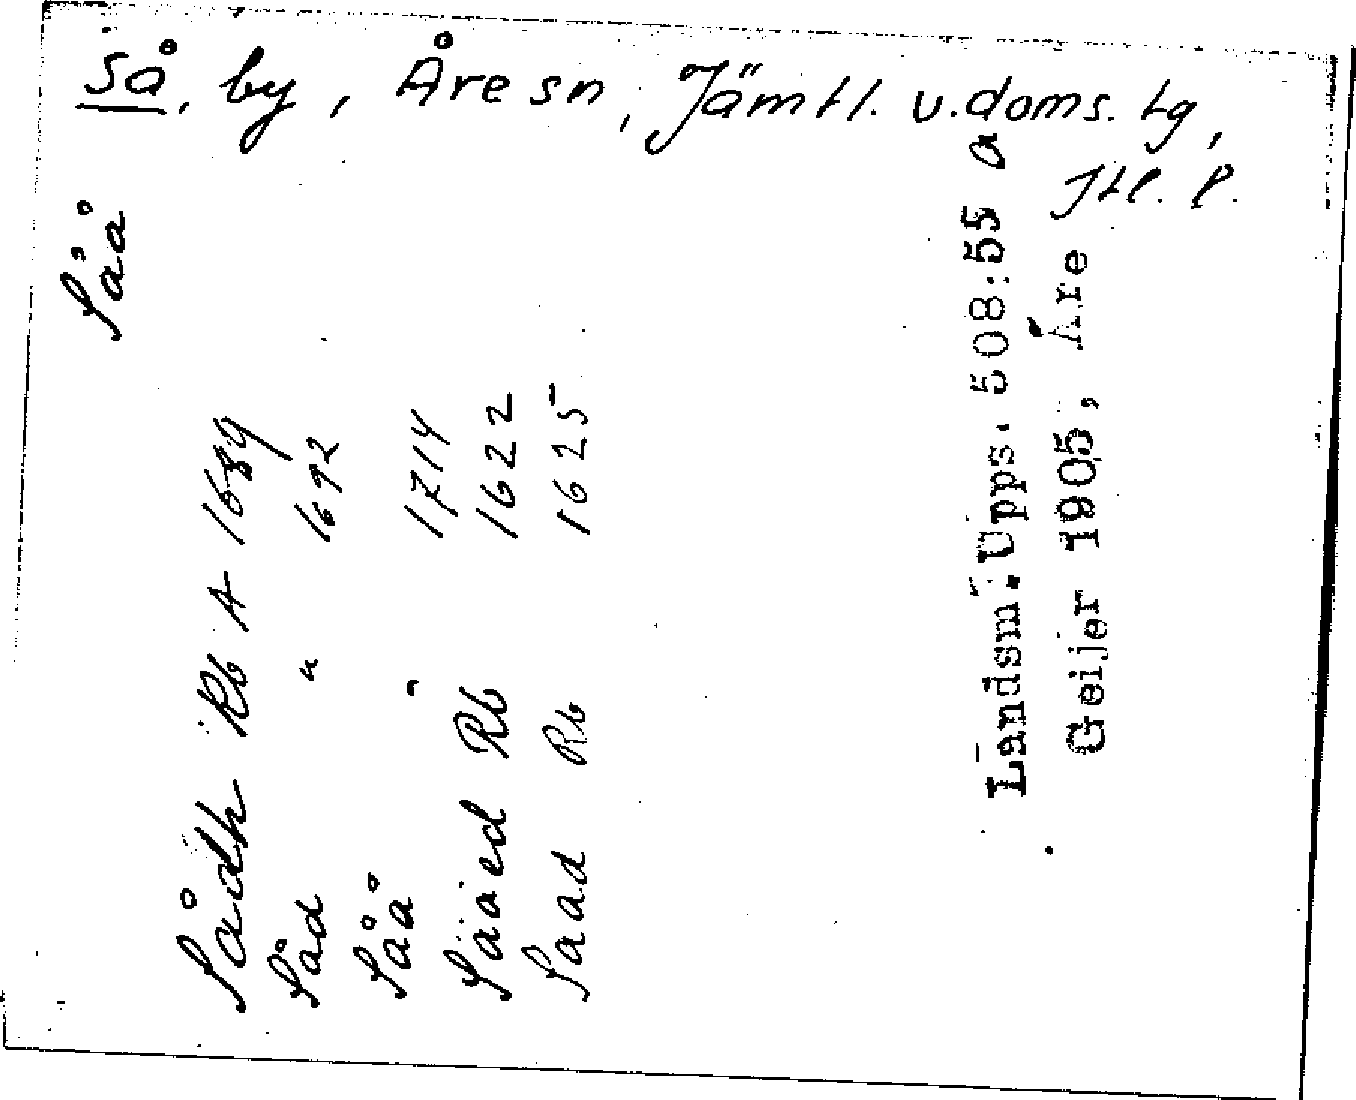 Så, by, Åre sn, Jämtl. v. doms. tg,
Jtl. l.
Såå
Sådh Rb A 1689
Såd " 1692
Såå " 1714
Saaed Rb 1622
Saad Rb 1625
Landsm. Upps. 508:55 a
Geijer 1905, Åre